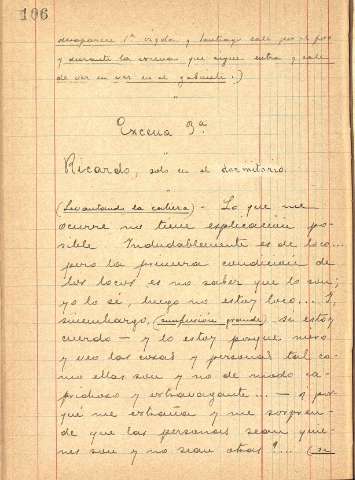 106
desaparece 1º Vigda y Santiago sale por el foro
y durante la escena que sigue entra y sale
de vez en vez en el gabinete.)
Excena 3ª
Ricardo, solo en el dormitorio.
(Levantando la cabeza) - Lo que me
ocurre no tiene explicación po-
sible. Indudablemente es de loco...
pero la primera condición de
los locos es no saber que lo son;
yo lo sé, luego no estoy loco... Y,
sinembargo, (confusión grande) si estoy
cuerdo - y lo estoy porque miro
y veo las cosas y personas tal co-
mo ellas son y no de modo ca-
prichoso y extravagante... - ¿ por
qué me extraña y me sorpren-
de que las personas sean quie-
nes son y no sean otras?... (se